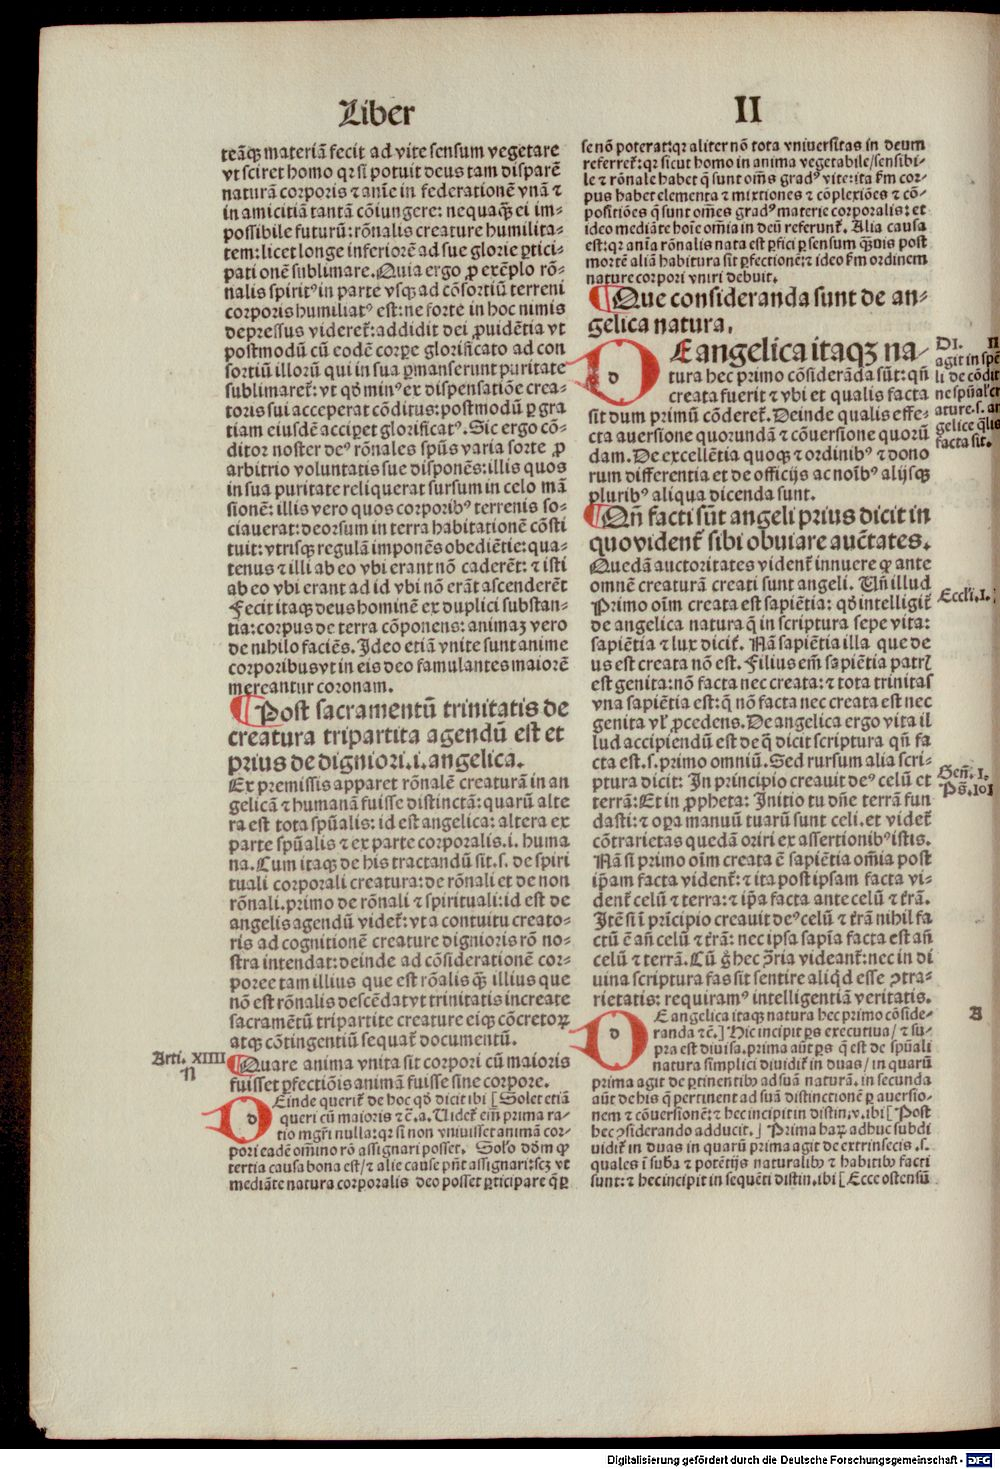 Liber
II
teāqȝ materiā fecit ad vite sensum vegetare
vt sciret homo qr si potuit deus tam disparē
naturā corporis ⁊ anīe in federationē vnā ⁊
in amicitiā tantā cōiungere: nequaq̄ȝ ei im⸗
possibile futurū: rōnalis creature humilita⸗
tem: licet longe inferiorē ad sue glorie ꝑtici⸗
pationē sublimare. Quia ergo ꝓ exēplo rō⸗
nalis spiritꝰ in parte vsqȝ ad cōsortiū terreni
corporis humiliatꝰ est: ne forte in hoc nimis
depressus videreť: addidit dei ꝓuidētia vt
postmodū cū eodē corpe glorificato ad con
sortiū illorū qui in sua ꝑmanserunt puritate
sublimareť: vt qd̄ minꝰ ex dispensatiōe crea⸗
toris sui acceperat cōditus: postmodū ꝑ gra
tiam eiusdē acciperet glorificatꝰ. Sic ergo cō⸗
ditor noster deꝰ rōnales spūs varia sorte ꝓ
arbitrio voluntatis sue disponēs: illis quos
in sua puritate reliquerat sursum in celo mā
sionē: illis vero quos corporibꝰ terrenis so⸗
ciauerat: deorsum in terra habitationē cōsti
tuit: vtrisqȝ regulā imponēs obediētie: qua⸗
tenus ⁊ illi ab eo vbi erant nō caderēt: ⁊ isti
ab eo vbi erant ad id vbi nō erāt ascenderēt
Fecit itaqȝ deus hominē ex duplici substan⸗
tia: corpus de terra cōponens: animaȝ vero
de nihilo faciēs. Ideo etiā vnite sunt anime
corporibus vt in eis deo famulantes maiorē
mereantur coronam.
¶ Post sacramentū trinitatis de
creatura tripartita agendū est et
prius de digniori .i. angelica.
Ex premissis apparet rōnalē creaturā in an
gelicā ⁊ humanā fuisse distinctā: quarū alte
ra est tota spūalis: id est angelica: altera ex
parte spūalis ⁊ ex parte corporalis .i. huma
na. Cum itaqȝ de his tractandū sit .s. de spiri
tuali corporali creatura: de rōnali et de non
rōnali. primo de rōnali ⁊ spirituali: id est de
angelis agendū videť: vt a contuitu creato⸗
ris ad cognitionē creature dignioris rō no⸗
stra intendat: deinde ad cōsiderationē cor⸗
poree tam illius que est rōalis q̄ȝ illius que
nō est rōnalis descēdat vt trinitatis increate
sacramētū tripartite creature eiqȝ cōcretoꝝ
atqȝ cōtingentiū sequať documentū.
Arti. XIIII
N
¶ Quare anima vnita sit corpori cū maioris
fuisset ꝑfectiōis animā fuisse sine corpore.
D d Einde queriť de hoc qd̄ dicit ibi [ Solet etiā
queri cū maioris ⁊ c̄. a. Videť eīm prima ra⸗
tio mgr̄i nulla: qr si non vniuisset animā cor⸗
pori eadē omīno rō assignari posset. Solo dd̄m ꝙ
tertia causa bona est/ ⁊ alie cause pn̄t assignari: scȝ vt
mediāte natura corporalis deo posset ꝑticipare q̄ ꝑ
se nō poterat: qr aliter nō tota vniuersitas in deum
referreť: qr sicut homo in anima vegetabile/ sensibi⸗
le ⁊ rōnale habet q̄ sunt om̄s gradꝰ vite: ita ẜm cor⸗
pus habet elementa ⁊ mixtiones ⁊ cōplexiōes ⁊ cō⸗
positiōes q̄ sunt om̄es gradꝰ materie corporalis: et
ideo mediāte hoīe om̄ia in deū referunť. Alia causa
est: qr anīa rōnalis nata est ꝑfici ꝑ sensum q̄uis post
mortē aliā habitura sit ꝑfectionē: ⁊ ideo ẜm ordinem
nature corpori vniri debuit.
¶ Que consideranda sunt de an⸗
gelica natura.
D d E angelica itaqȝ na⸗
tura hec primo cōsiderāda sūt: qn̄
creata fuerit ⁊ vbi et qualis facta
sit dum primū cōdereť. Deinde qualis effe⸗
cta auersione quorundā ⁊ cōuersione quorū
dam. De excellētia quoqȝ ⁊ ordinibꝰ ⁊ dono
rum differentia et de officijs ac noībꝰ alijsqȝ
pluribꝰ aliqua dicenda sunt.
DI. II
agit in spē
li de cōdit
ne spūal' cr
ature .s. an
gelice q̄lis
facta sit.
¶ Qn̄ facti sūt angeli prius dicit in
quo videnť sibi obuiare auctates.
Quedā auctoritates videnť innuere ꝙ ante
omnē creaturā creati sunt angeli. Vn̄ illud
Primo oīm creata est sapiētia: qd̄ intelligiť
de angelica natura q̄ in scriptura sepe vita:
sapiētia ⁊ lux diciť. Nā sapiētia illa que de
us est creata nō est. Filius em̄ sapiētia patrꝭ
est genita: nō facta nec creata: ⁊ tota trinitas
vna sapiētia est: q̄ nō facta nec creata est nec
genita vl' ꝓcedens. De angelica ergo vita il
lud accipiendū est de q̄ dicit scriptura qn̄ fa
cta est .s. primo omniū. Sed rursum alia scri⸗
ptura dicit: In principio creauit deꝰ celū et
terrā: Et in ꝓpheta: Initio tu dn̄e terrā fun
dasti: ⁊ oꝑa manuū tuarū sunt celi. et videť
cōtrarietas quedā oriri ex assertionibꝰ istis.
Nā si primo oīm creata ē sapiētia om̄ia post
ip̄am facta videnť: ⁊ ita post ipsam facta vi⸗
denť celū ⁊ terra: ⁊ ip̄a facta ante celū ⁊ t̄rā.
Itē si ī pr̄icipio creauit deꝰ celū ⁊ t̄rā nihil fa
ctū ē an̄ celū ⁊ t̄rā: nec ipsa sapīa facta est an̄
celū ⁊ terrā. Cū g̊ hec ꝯria videanť: nec in di
uina scriptura fas sit sentire aliqd esse ꝯtra⸗
rietatis: requiramꝰ intelligentiā veritatis.
Eccli. I.
Gen̄. I.
Ps̄. 101
A
D d E angelica itaqȝ natura hec primo cōside⸗
randa ⁊ c̄.] Hic incipit ꝑs executiua/ ⁊ su⸗
pra est diuisa. prima aūt ꝑs q̄ est de spūali
natura simplici diuidiť in duas/ in quarū
prima agit de ꝑtinentibꝰ ad suā naturā. in secunda
aūt de his q̄ ꝑtinent ad suā distinctionē ꝑ auersio⸗
nem ⁊ cōuersionē: ⁊ hec incipit in distin. v. ibi [ Post
hec ꝯsiderando adducit.] Prima haꝝ adhuc subdi
uidiť in duas in quarū prima agit de extrinsecis .s.
quales ī suba ⁊ potētijs naturalibꝰ ⁊ habitibꝰ facti
sunt: ⁊ hec incipit in sequēti distin. ibi [ Ecce ostensū
Digitalisierung gefördert durch die Deutsche Forschungsgemeinschaft - DFG